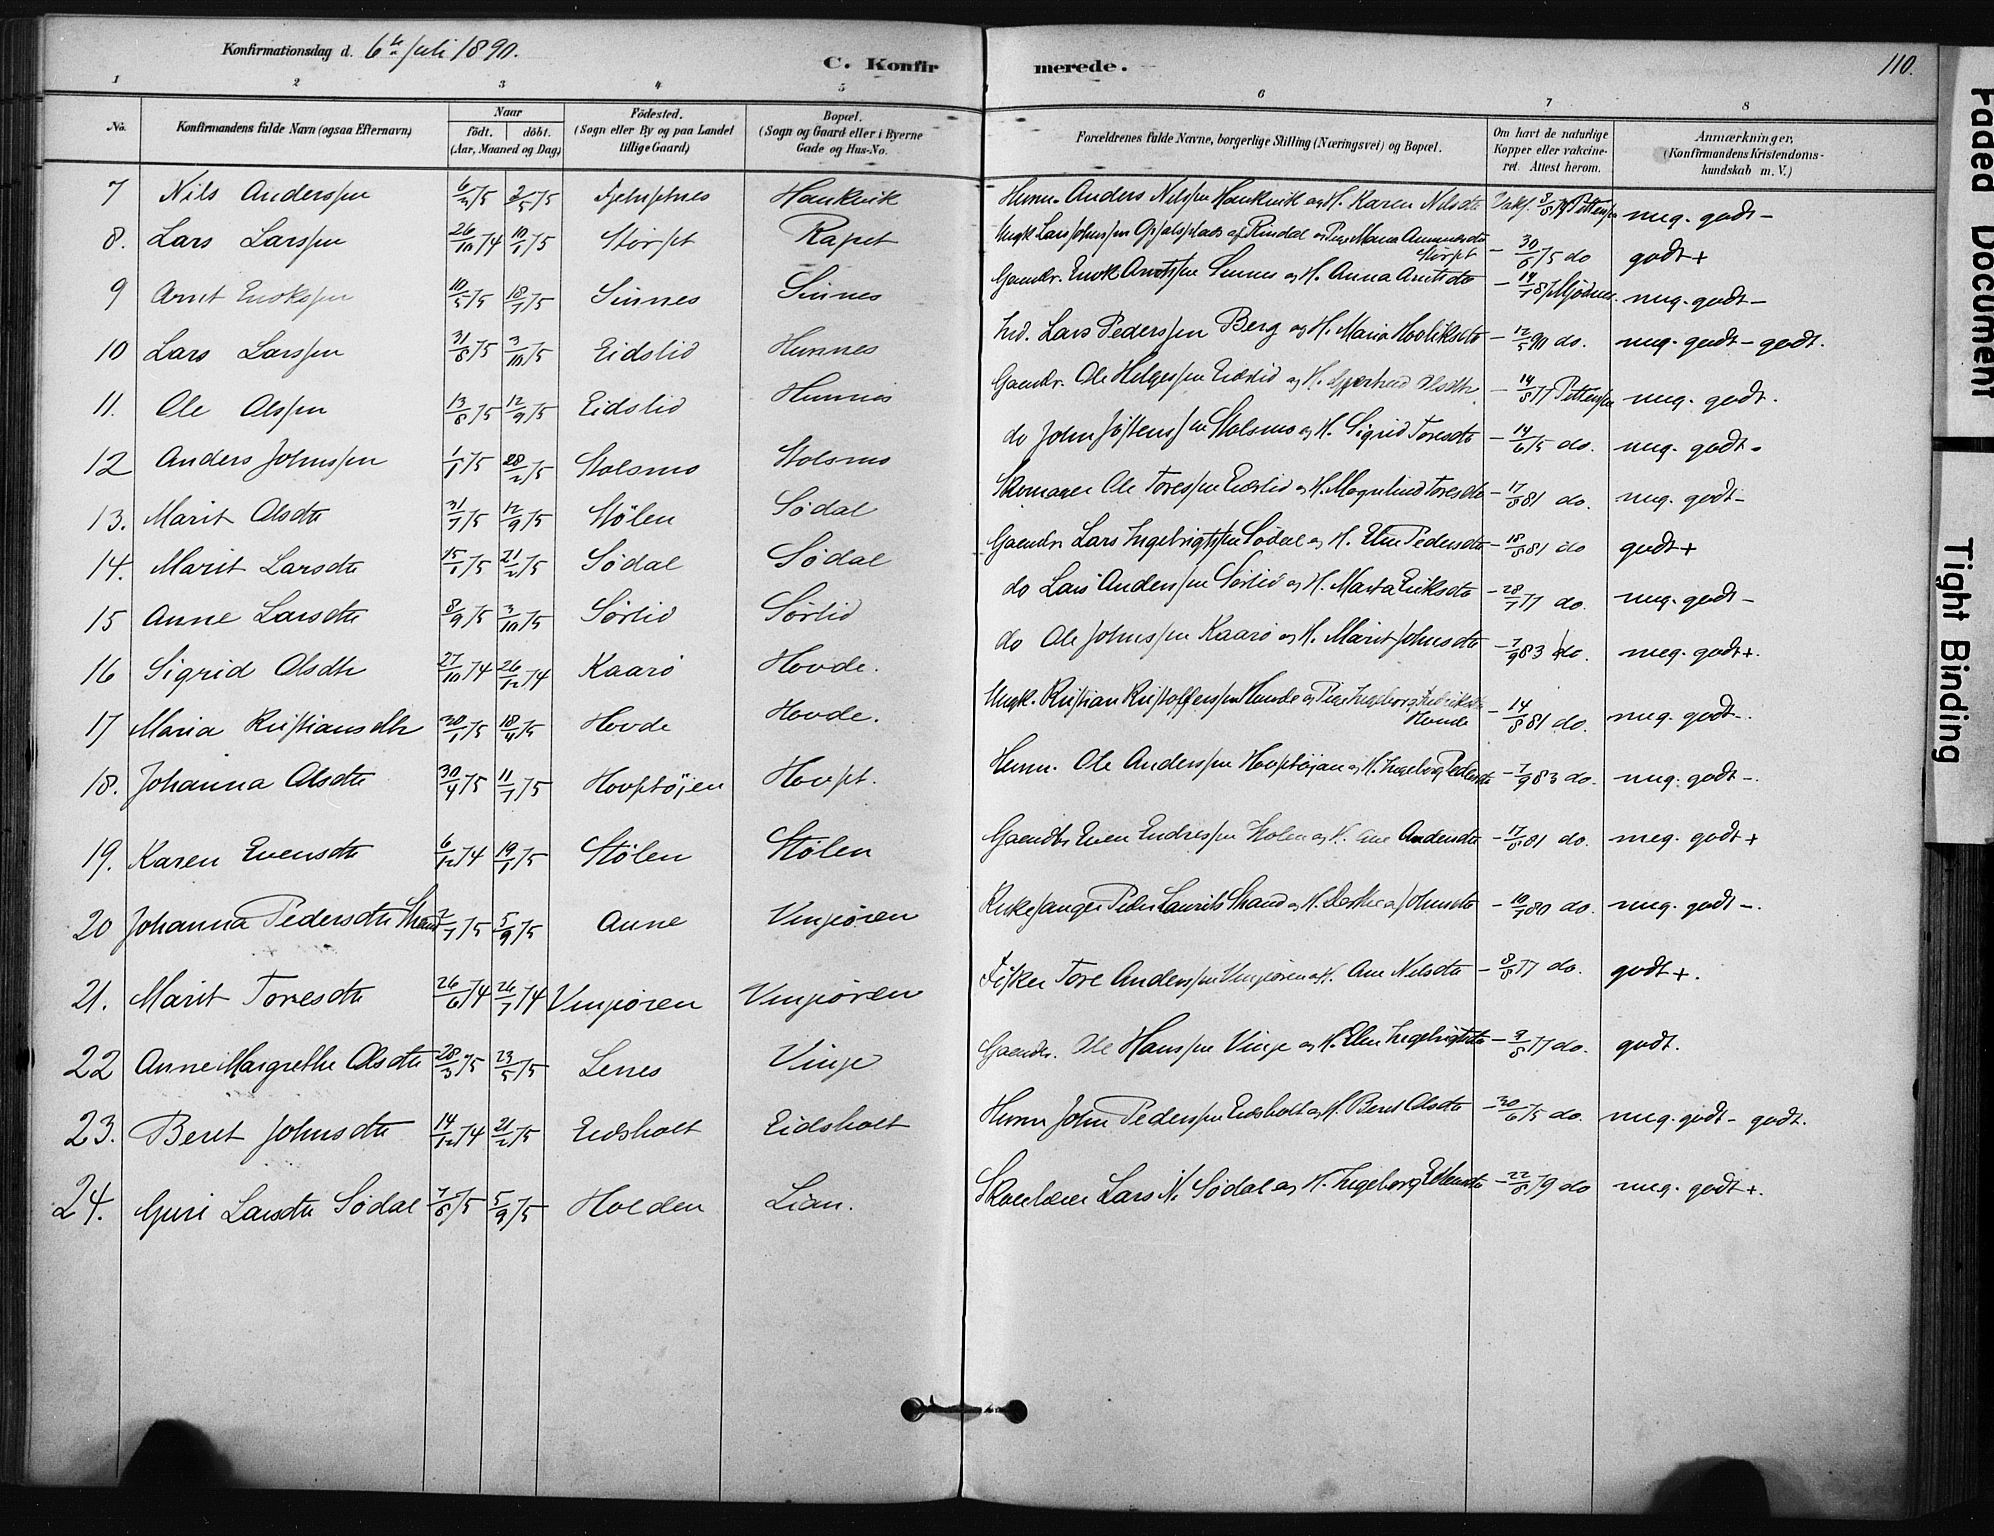 Konfirmationsdag d. 6te Juli 1890.
C. Konfirmerede.
110.
1 2 3 4 5 6 7 8
No. Konfirmandens fulde Navn (ogsaa Efternavn) Naar födt. döbt. (Aar, Maaned og Dag) Födested. (Sogn eller By og paa Landet tillige Gaard) Bopæl. (Sogn og Gaard eller i Byerne Gade og Hus-No. Forældrenes fulde Navne, borgerlige Stilling (Næringsvei) og Bopæl. Om havt de naturlige Kopper eller vakcineret. Attest herom. Anmærkninger, (Konfirmandens Kristendomskundskab m. V.)
7 Nils Anderssen 6/2 75 2/5 75 Haukvik Anders Nilssen Haukvik og H. Karen Nilsdtr Pettersen meg. godt -
8. Lars Larssen 26/10 74 10/1 75 Størset Rapet Ungk. Lars Johnssen af Rindal og Pige Maria Størset - 30/6 75 do godt +
9 Arnt Enokssen 10/5 75 18/7 75 Sinnes Sinnes Gaardbr. Enok Arntssen Sinnes og H. Anna Arntsdtr - 14/7 87 meg. godt -
10 Lars Larssen 31/8 75 3/10 75 Eidslid Hennes Ind. Lars Pederssen Berg og H. Maria - 12/5 90 do. meg. godt - godt.
11. Ole Olssen 13/8 75 12/9 75 Eidslid Hennes Gaardbr. Ole Helgessen Eidslid og H. Olsdtr. - 14/8 77 Pettersen meg. godt.
12 Anders Johnssen 1/1 75 28/2 75 Stolsmo Stolsmo do John Jøstenssen Stolsmo og H. Sigrid Toresdtr - 14/6 75 do. meg. godt -
13. Marit Olsdtr 31/7 75 12/9 75 Stølen Södal Skomager Ole Toressen Eidslid og H. Magnhild Toresdtr - 17/8 81 do. meg. godt -
14. Marit Larsdtr 15/1 75 21/2 75 Södal Södal Gaardbr. Lars Ingebrigtssen Södal og H. Elen Pedersdtr - 18/8 81 do godt +
15 Anne Larsdtr 8/9 75 3/10 75 Sørlid Sørlid do Lars Anderssen Sørlid og H. Marta Eriksdtr - 28/7 77 do. meg. godt -
16 Sigrid Olsdtr 27/10 74 26/12 74 Kaarö Hovde. do Ole Johnssen Kaarö og H. Marit Johnsdtr - 7/9 83 do. meg. godt +.
17 Maria Kristiansdtr 30/1 75 18/4 75 Hovde Hovde. Ungk. Kristian Kristofferssen Hunde og Pige Ingeborg Hunde - 14/8 81 do. meg. godt -.
18. Johanna Olsdtr 30/4 75 11/7 75 Hovstöjen Hovst. Husm. Ole Anderssen Hovstöjen og H. Ingeborg Pedersdtr - 7/9 83 do. meg. godt -.
19. Karen Evensdtr 6/12 74 19/1 75 Stølen Stølen Gaardbr. Even Endressen Stølen og H. Ane Andersdtr - 17/8 81 do. meg. godt +
20 Johanna Pedersdtr Strand 7/7 75 5/9 75 Aune Vinjøren Kirkesanger Peder Laurits Strand og H. Johnsdtr - 10/7 80 do. meg. godt -.
21. Marit Toresdtr 26/6 74 26/7 74 Vinjøren Vinjøren Fisker Tore Anderssen Vinjøren og H. Ane Nilsdtr - 8/8 77 do. godt +.
22 Anne Margrethe Olsdtr 28/3 75 23/5 75 Lenes Vinje Gaardbr. Ole Hanssen Vinje og H. Elen Ingebrigtsdtr - 9/8 77 do. godt.
23. Beret Johnsdtr 14/12 74 21/2 75 Eidsholt Eidsholt Husm John Pederssen Eidsholt og H. Beret Olsdtr - 30/6 75 do. meg. godt - godt.
24. Guri Larsdtr Södal 7/8 75 5/9 75 Holden Lian. Skolelærer Lars N. Södal og H. Ingeborg - 22/8 79 do meg. godt +.
Faded Document
Tight Binding